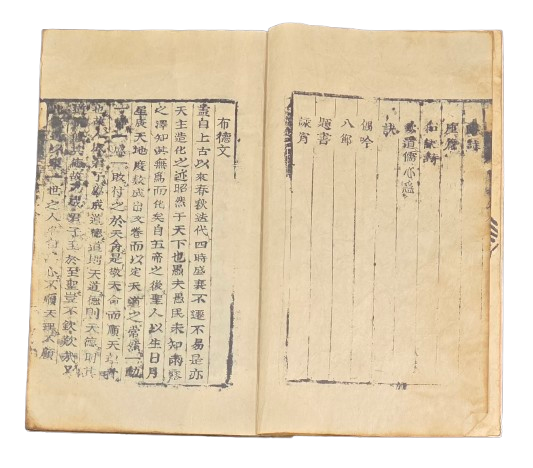 座箴
和訣詩
歎道儒心急
訣
偶吟
八節
題書
詠宵
布德文
盖自上古以來春秋迭代四時盛衰不遷不易是亦
天主造化之迹昭然于天下也愚夫愚民未知雨露
之澤知其無爲而化矣自五帝之後聖人以生日月
星辰天地度數成出文卷而以定天道之常然一動
一盛一敗付之於天命是敬天命而順天理者
也故人成君子學成道德道則天道德則天德明其
德故乃成君子至於至聖豈不欽歎哉又
以來一世之人各自爲心不順天理不顧